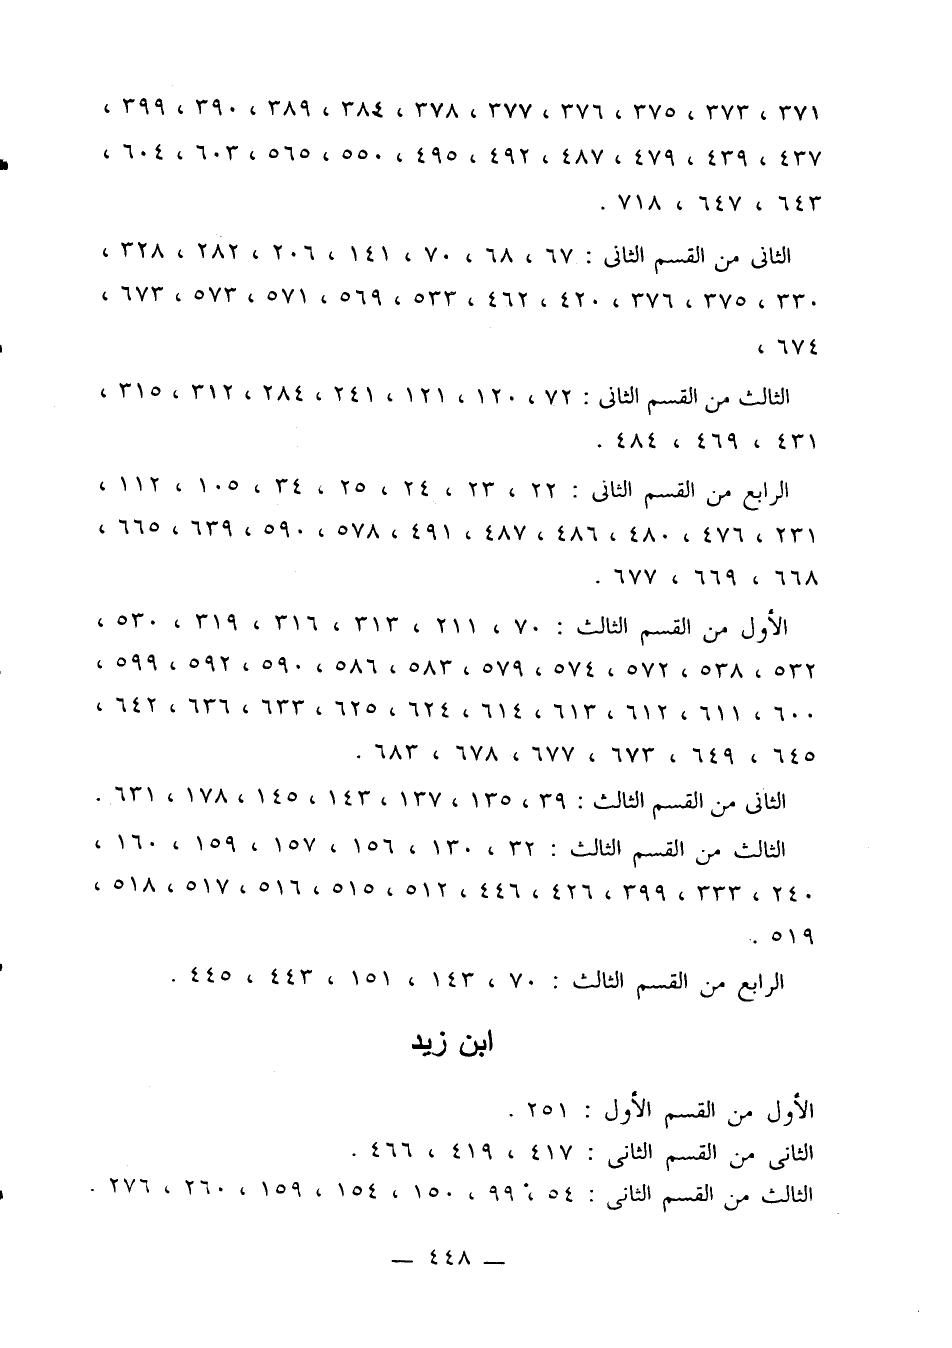 ٣٧١ ، ٣٧٣ ، ٣٧٥ ، ٣٧٦ ، ٣٧٧ ، ٣٧٨ ، ٣٨٤ ، ٣٨٩ ، ٣٩٠ ، ٣٩٩ ،
٤٣٧ ، ٤٣٩ ، ٤٧٩ ، ٤٨٧ ، ٤٩٢ ، ٤٩٥ ، ٥٥٠ ، ٥٦٥ ، ٦٠٣ ، ٦٠٤ ،
٦٤٣ ، ٦٤٧ ، ٧١٨ .
الثانى من القسم الثانى : ٦٧ ، ٦٨ ، ٧٠ ، ١٤١ ، ٢٠٦ ، ٢٨٢ ، ٣٢٨ ،
٣٣٠ ، ٣٧٥ ، ٣٧٦ ، ٤٢٠ ، ٤٦٢ ، ٥٣٣ ، ٥٦٩ ، ٥٧١ ، ٥٧٣ ، ٦٧٣ ،
٦٧٤ ،
الثالث من القسم الثانى : ٧٢ ، ١٢٠ ، ١٢١ ، ٢٤١ ، ٢٨٤ ، ٣١٢ ، ٣١٥ ،
٤٣١ ، ٤٦٩ ، ٤٨٤ .
الرابع من القسم الثانى : ٢٢ ، ٢٣ ، ٢٤ ، ٢٥ ، ٣٤ ، ١٠٥ ، ١١٢ ،
٢٣١ ، ٤٧٦ ، ٤٨٠ ، ٤٨٦ ، ٤٨٧ ، ٤٩١ ، ٥٧٨ ، ٥٩٠ ، ٦٣٩ ، ٦٦٥ ،
٦٦٨ ، ٦٦٩ ، ٦٧٧ .
الأول من القسم الثالث : ٧٠ ، ٢١١ ، ٣١٣ ، ٣١٦ ، ٣١٩ ، ٥٣٠ ،
٥٣٢ ، ٥٣٨ ، ٥٧٢ ، ٥٧٤ ، ٥٧٩ ، ٥٨٣ ، ٥٨٦ ، ٥٩٠ ، ٥٩٢ ، ٥٩٩ ،
٦٠٠ ، ٦١١ ، ٦١٢ ، ٦١٣ ، ٦١٤ ، ٦٢٤ ، ٦٢٥ ، ٦٣٣ ، ٦٣٦ ، ٦٤٢ ،
٦٤٥ ، ٦٤٩ ، ٦٧٣ ، ٦٧٧ ، ٦٧٨ ، ٦٨٣ .
الثانى من القسم الثالث : ٣٩ ، ١٣٥ ، ١٣٧ ، ١٤٣ ، ١٤٥ ، ١٧٨ ، ٦٣١ .
الثالث من القسم الثالث : ٣٢ ، ١٣٠ ، ١٥٦ ، ١٥٧ ، ١٥٩ ، ١٦٠ ،
٢٤٠ ، ٣٣٣ ، ٣٩٩ ، ٤٢٦ ، ٤٤٦ ، ٥١٢ ، ٥١٥ ، ٥١٦ ، ٥١٧ ، ٥١٨ ،
٥١٩ .
الرابع من القسم الثالث : ٧٠ ، ١٤٣ ، ١٥١ ، ٤٤٣ ، ٤٤٥ .
ابن زيد
الأول من القسم الأول : ٢٥١ .
الثانى من القسم الثانى : ٤١٧ ، ٤١٩ ، ٤٦٦ .
الثالث من القسم الثانى : ٥٤ ، ٩٩ ، ١٥٠ ، ١٥٤ ، ١٥٩ ، ٢٦٠ ، ٢٧٦ .
— ٤٤٨ —